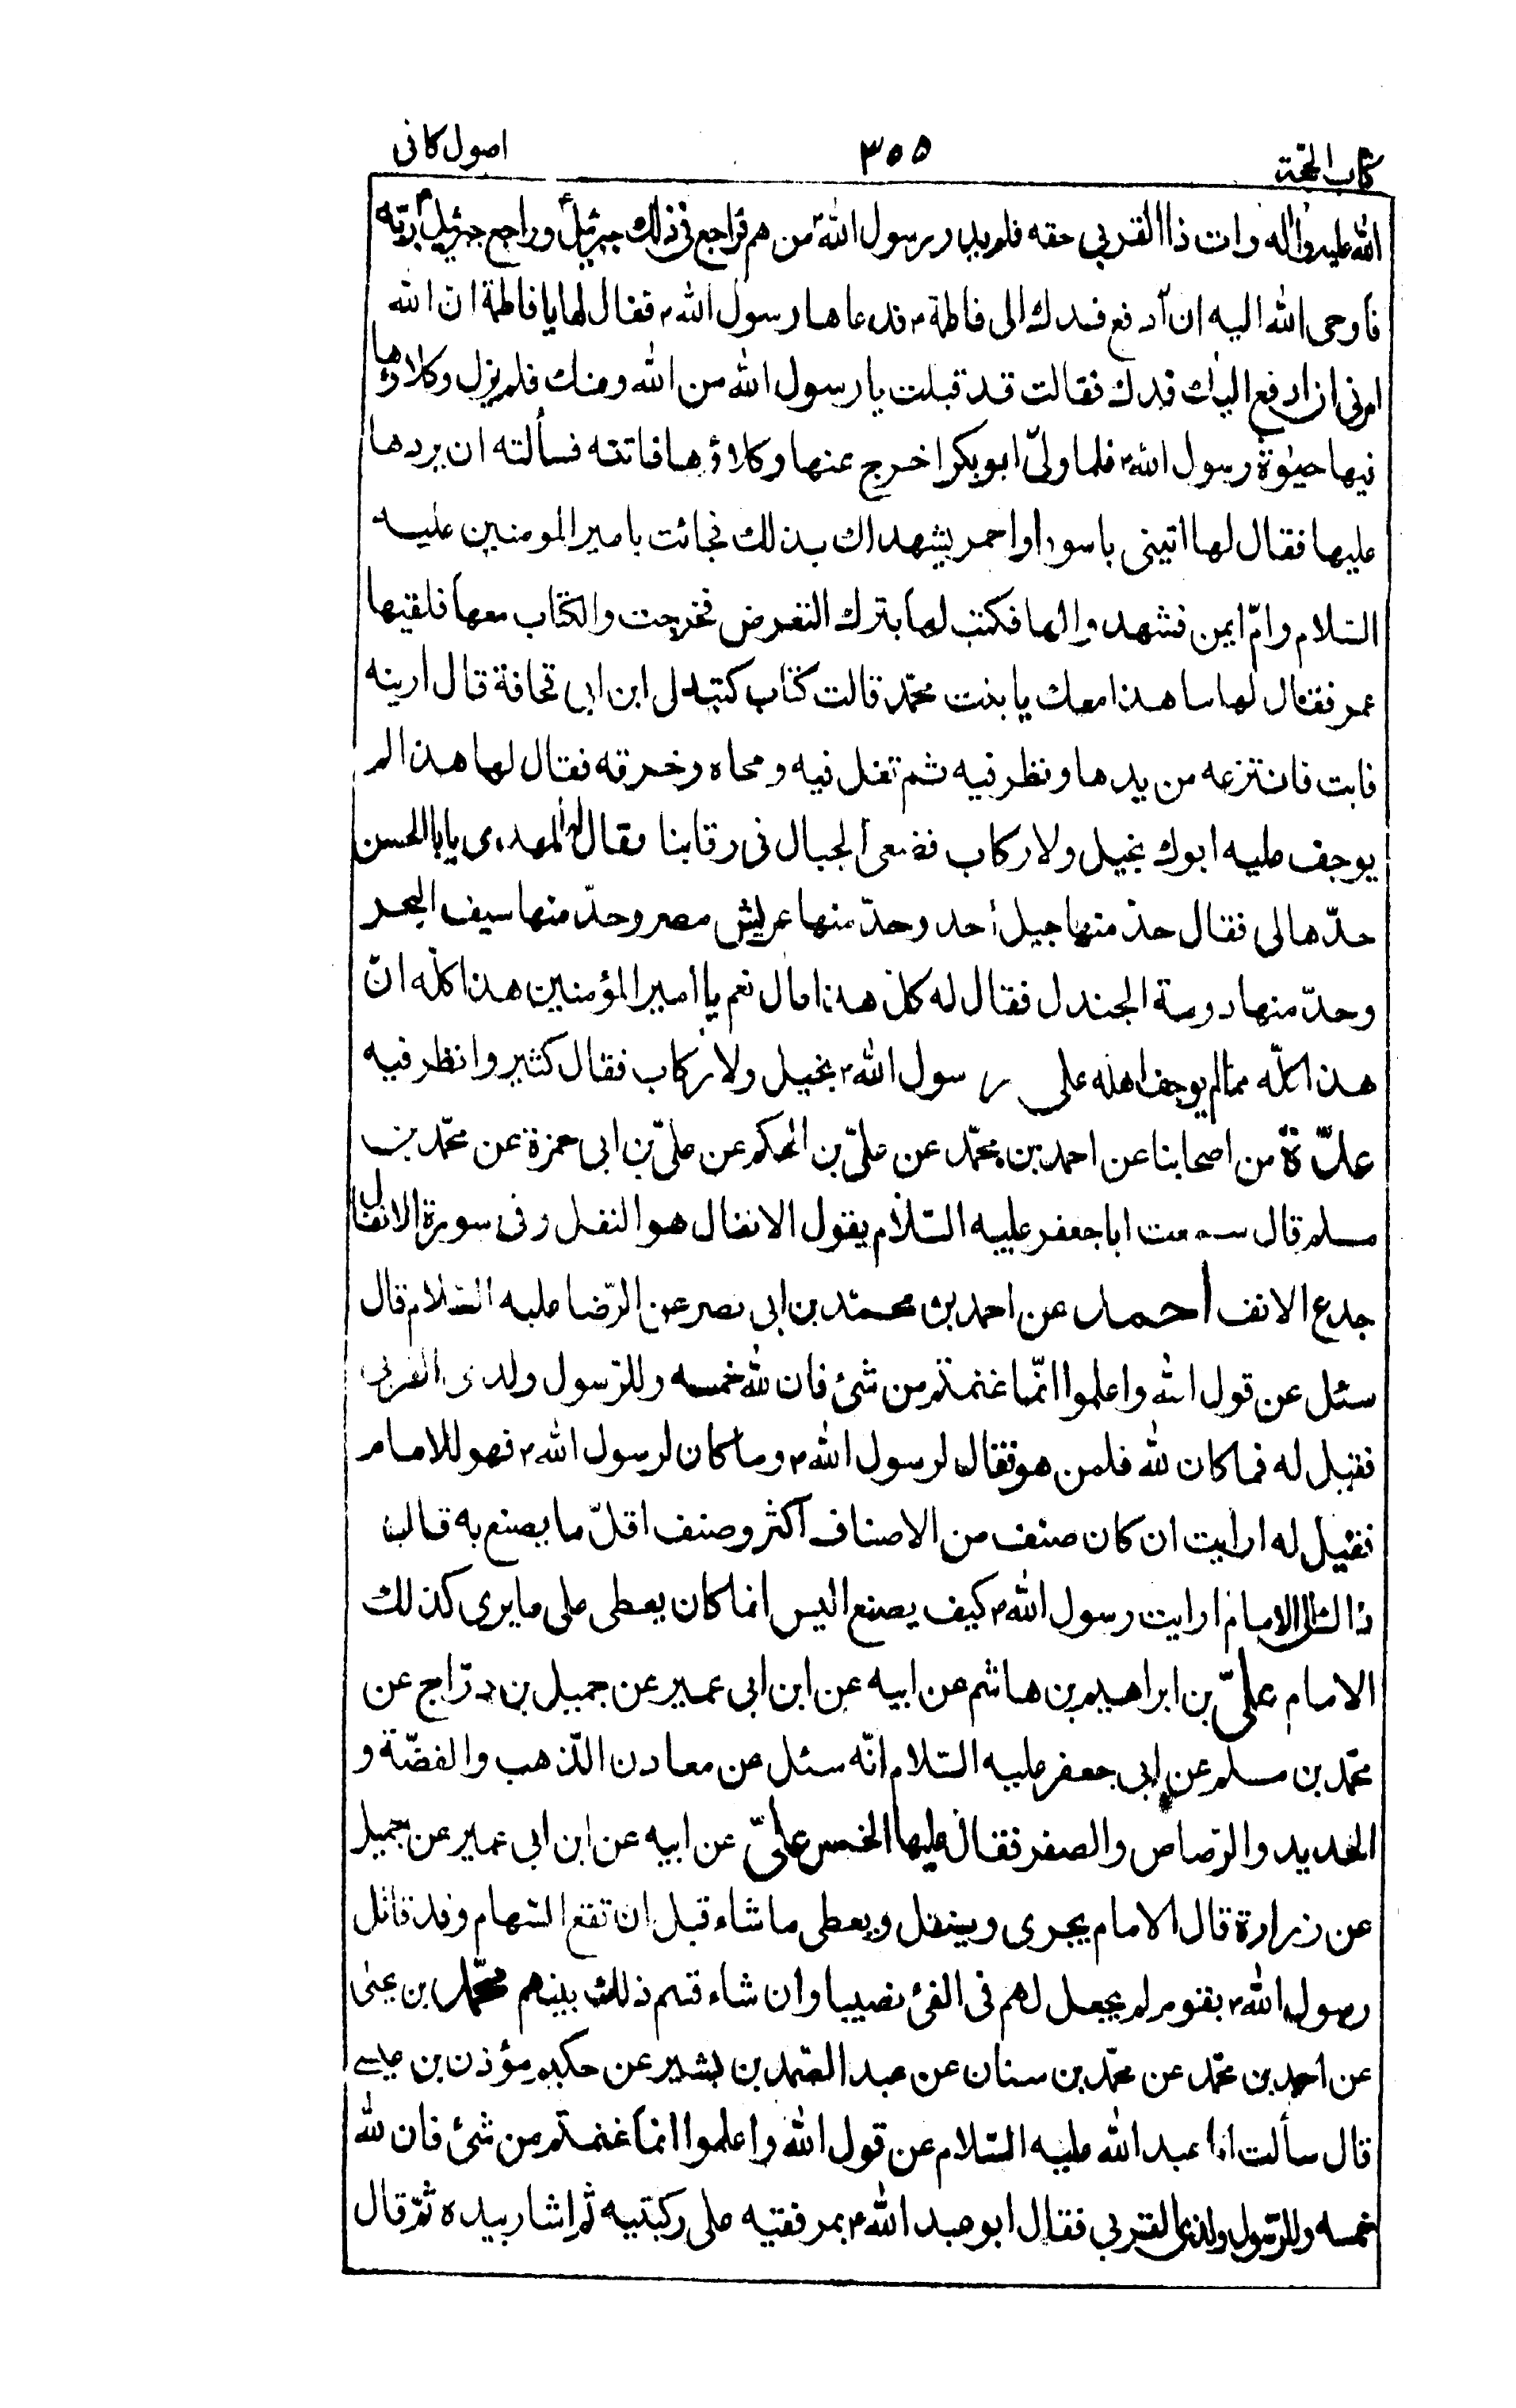 كتاب الحجّة ٣٥٥ اصول كافى
الله عليه واله وات ذا القربى حقه فلم يدر رسول الله ص من هم فراجع فى ذلك جبرئيل ع وراجع جبرئيل ع ربّه
فاوحى الله اليه ان ادفع فدك الى فاطمة ع فدعاها رسول الله ص فقال لها يا فاطمة ان الله
امرنى ان ادفع اليك فدك فقالت قد قبلت يا رسول الله من الله ومنك فلم يزل وكلاؤها
فيها حيوٰة رسول الله ص فلما ولىّ ابو بكر اخرج عنها وكلاؤها فاتته فسألته ان يردها
عليها فقال لها ائتينى باسود او احمر يشهد لك بذلك فجائت بامير المومنين عليه
السّلام وامّ ايمن فشهدوا لها فكتب لها بترك التعرض فخرجت والكتاب معها فلقيها
عمر فقال لها ما هذا معك يا بنت محمّد قالت كتاب كتبه لى ابن ابى قحافة قال ارينه
فابت فانتزعه من يدها ونظر فيه ثم تفل فيه ومحاه وخرقه فقال لها هذا لم
يوجف عليه ابوك بخيل ولا ركاب فضعى الجبال فى رقابنا فقال له المهدى يا با الحسن
حدّها لى فقال حدّ منها جبل أحد وحدّ منها عريش مصر وحدّ منها سيف البحر
وحدّ منها دومة الجندل فقال له كلّ هذا قال نعم يا امير المؤمنين هذا كلّه انّ
هذا كلّه ممّا لم يوجف اهله على رسول الله ص بخيل ولا ركاب فقال كثير وانظر فيه
علّة من اصحابنا عن احمد بن محمّد عن علىّ بن الحكم عن علىّ بن ابى حمزة عن محمّد بن
مسلم قال سمعت ابا جعفر عليه السّلام يقول الانفال هو النفل وفى سورة الانفال
جدع الانف احمد عن احمد بن محمّد بن ابى نصر عن الرّضا عليه السّلام قال
سئل عن قول الله واعلموا انّما غنمتم من شئ فان لله خمسه وللرّسول ولذى القربى
فقيل له فما كان لله فلمن هو فقال لرسول الله ص وما كان لرسول الله ص فهو للامام
فقيل له ارايت ان كان صنف من الاصناف اكثر وصنف اقلّ ما يصنع به قال
ذاك الى الامام ارايت رسول الله ص كيف يصنع اليس انما كان يعطى على ما يرى كذلك
الامام علىّ بن ابراهيم بن هاشم عن ابيه عن ابن ابى عمير عن جميل بن درّاج عن
محمّد بن مسلم عن ابى جعفر عليه السّلام انّه سئل عن معادن الذّهب والفضّة و
الحديد والرّصاص والصفر فقال عليها الخمس علىّ عن ابيه عن ابن ابى عمير عن جميل
عن زرارة قال الامام يجرى وينفل ويعطى ما شاء قبل ان تقع السّهام وقد قاتل
رسول الله ص بقوم لم يجعل لهم فى الفئ نصيبا وان شاء قسم ذلك بينهم محمّد بن يحيى
عن احمد بن محمّد عن محمّد بن سنان عن عبد الصّمد بن بشير عن حكيم مؤذن بن عيسے
قال سألت ابا عبد الله عليه السّلام عن قول الله واعلموا انمّا غنمتم من شئ فان لله
خمسه وللرّسول ولذى القربى فقال ابو عبد الله ع بمرفقيه على ركبتيه ثم اشار بيده ثمّ قال